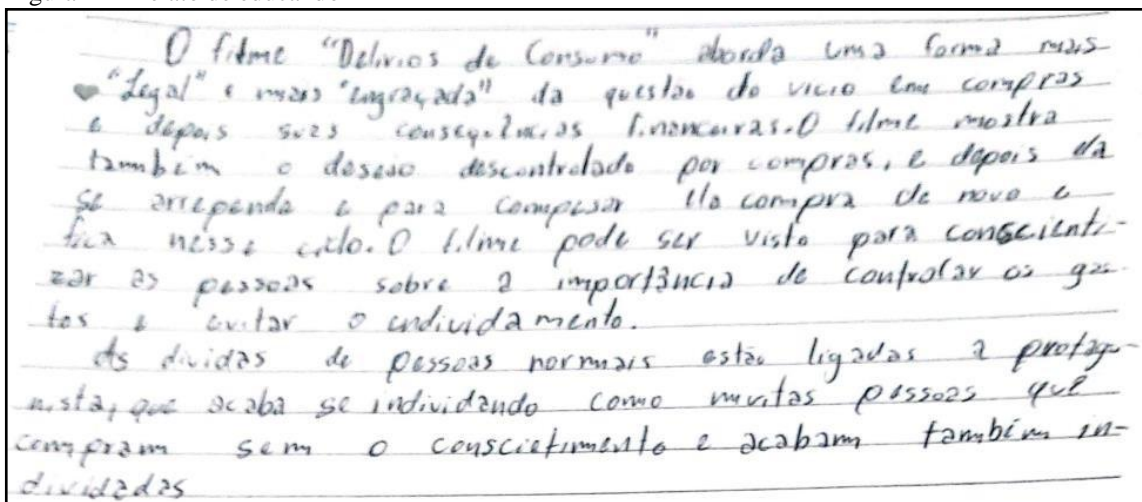 O filme "Delirios de Consumo" aborda uma forma mais
"Legal" e mais "engraçada" da questão do vicio em compras
e depois suas consequências financeiras. O filme mostra
também o desejo descontrolado por compras, e depois ela
se arrepende e para compesar ela compra de novo e
fica nesse ciclo. O filme pode ser visto para conscienti-
zar as pessoas sobre a importância de controlar os gas-
tos e evitar o endividamento.
As dividas de pessoas normais estão ligadas a protago-
nista, que acaba se individando como muitas pessoas que
compram sem o conscietimento e acabam também in-
dividadas